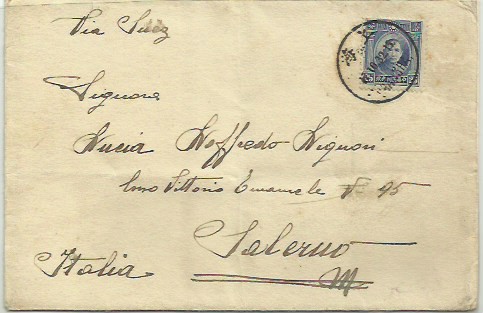 Via Suez
Signora
Lucia Noffredo Liguori
Corso Vittorio Emanuele N 95
Salerno
Italia